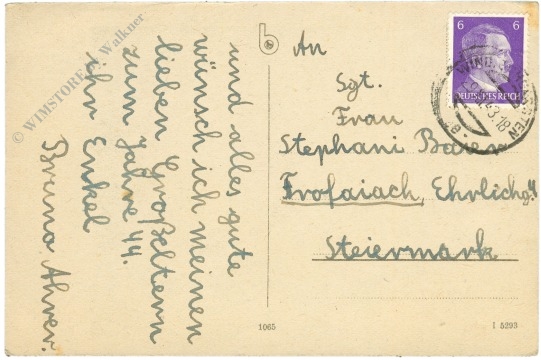 und alles gute
wünsch ich meinen
lieben Großeltern
zum Jahre 44.
ihr Enkel
Bruno Ahrer.
An
Sgt.
Frau
Stephani
Trofaiach, Ehrlichg. 4
Steiermark
6 6
DEUTSCHES REICH
1065
I 5293
© WIMSTORE E. Walkner